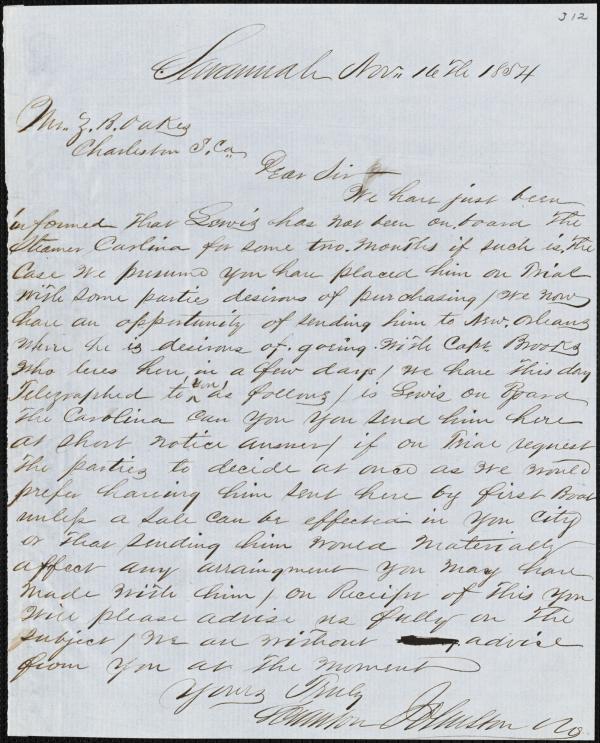 312
Savannah Nov 16th 1854
Mr. Z. B. Oakes
Charleston S. Ca
Dear Sir
We have just been
informed that Lewis has not been on board the
Steamer Carlina for some two months if such is the
Case we presume you have placed him on Trial
with some parties desirous of purchasing / We now
have an opportunity of sending him to New Orleans
where he is desirous of going with Capt Brooks
who leves here in a few days / We have this day
Telegraphed to you as follows / is Lewis on Board
the Carolina can you you send him here
at short notice answer / if on Trial request
the parties to decide at once as we would
prefer having him sent here by first Boat
unless a sale can be effected in you City
or that sending him would materially
affect any arraingment you may have
made with him / on Receipt of this you
will please advise us fully on the
subject / We are without advise
from you at the moment
Yours Truly
Johnston